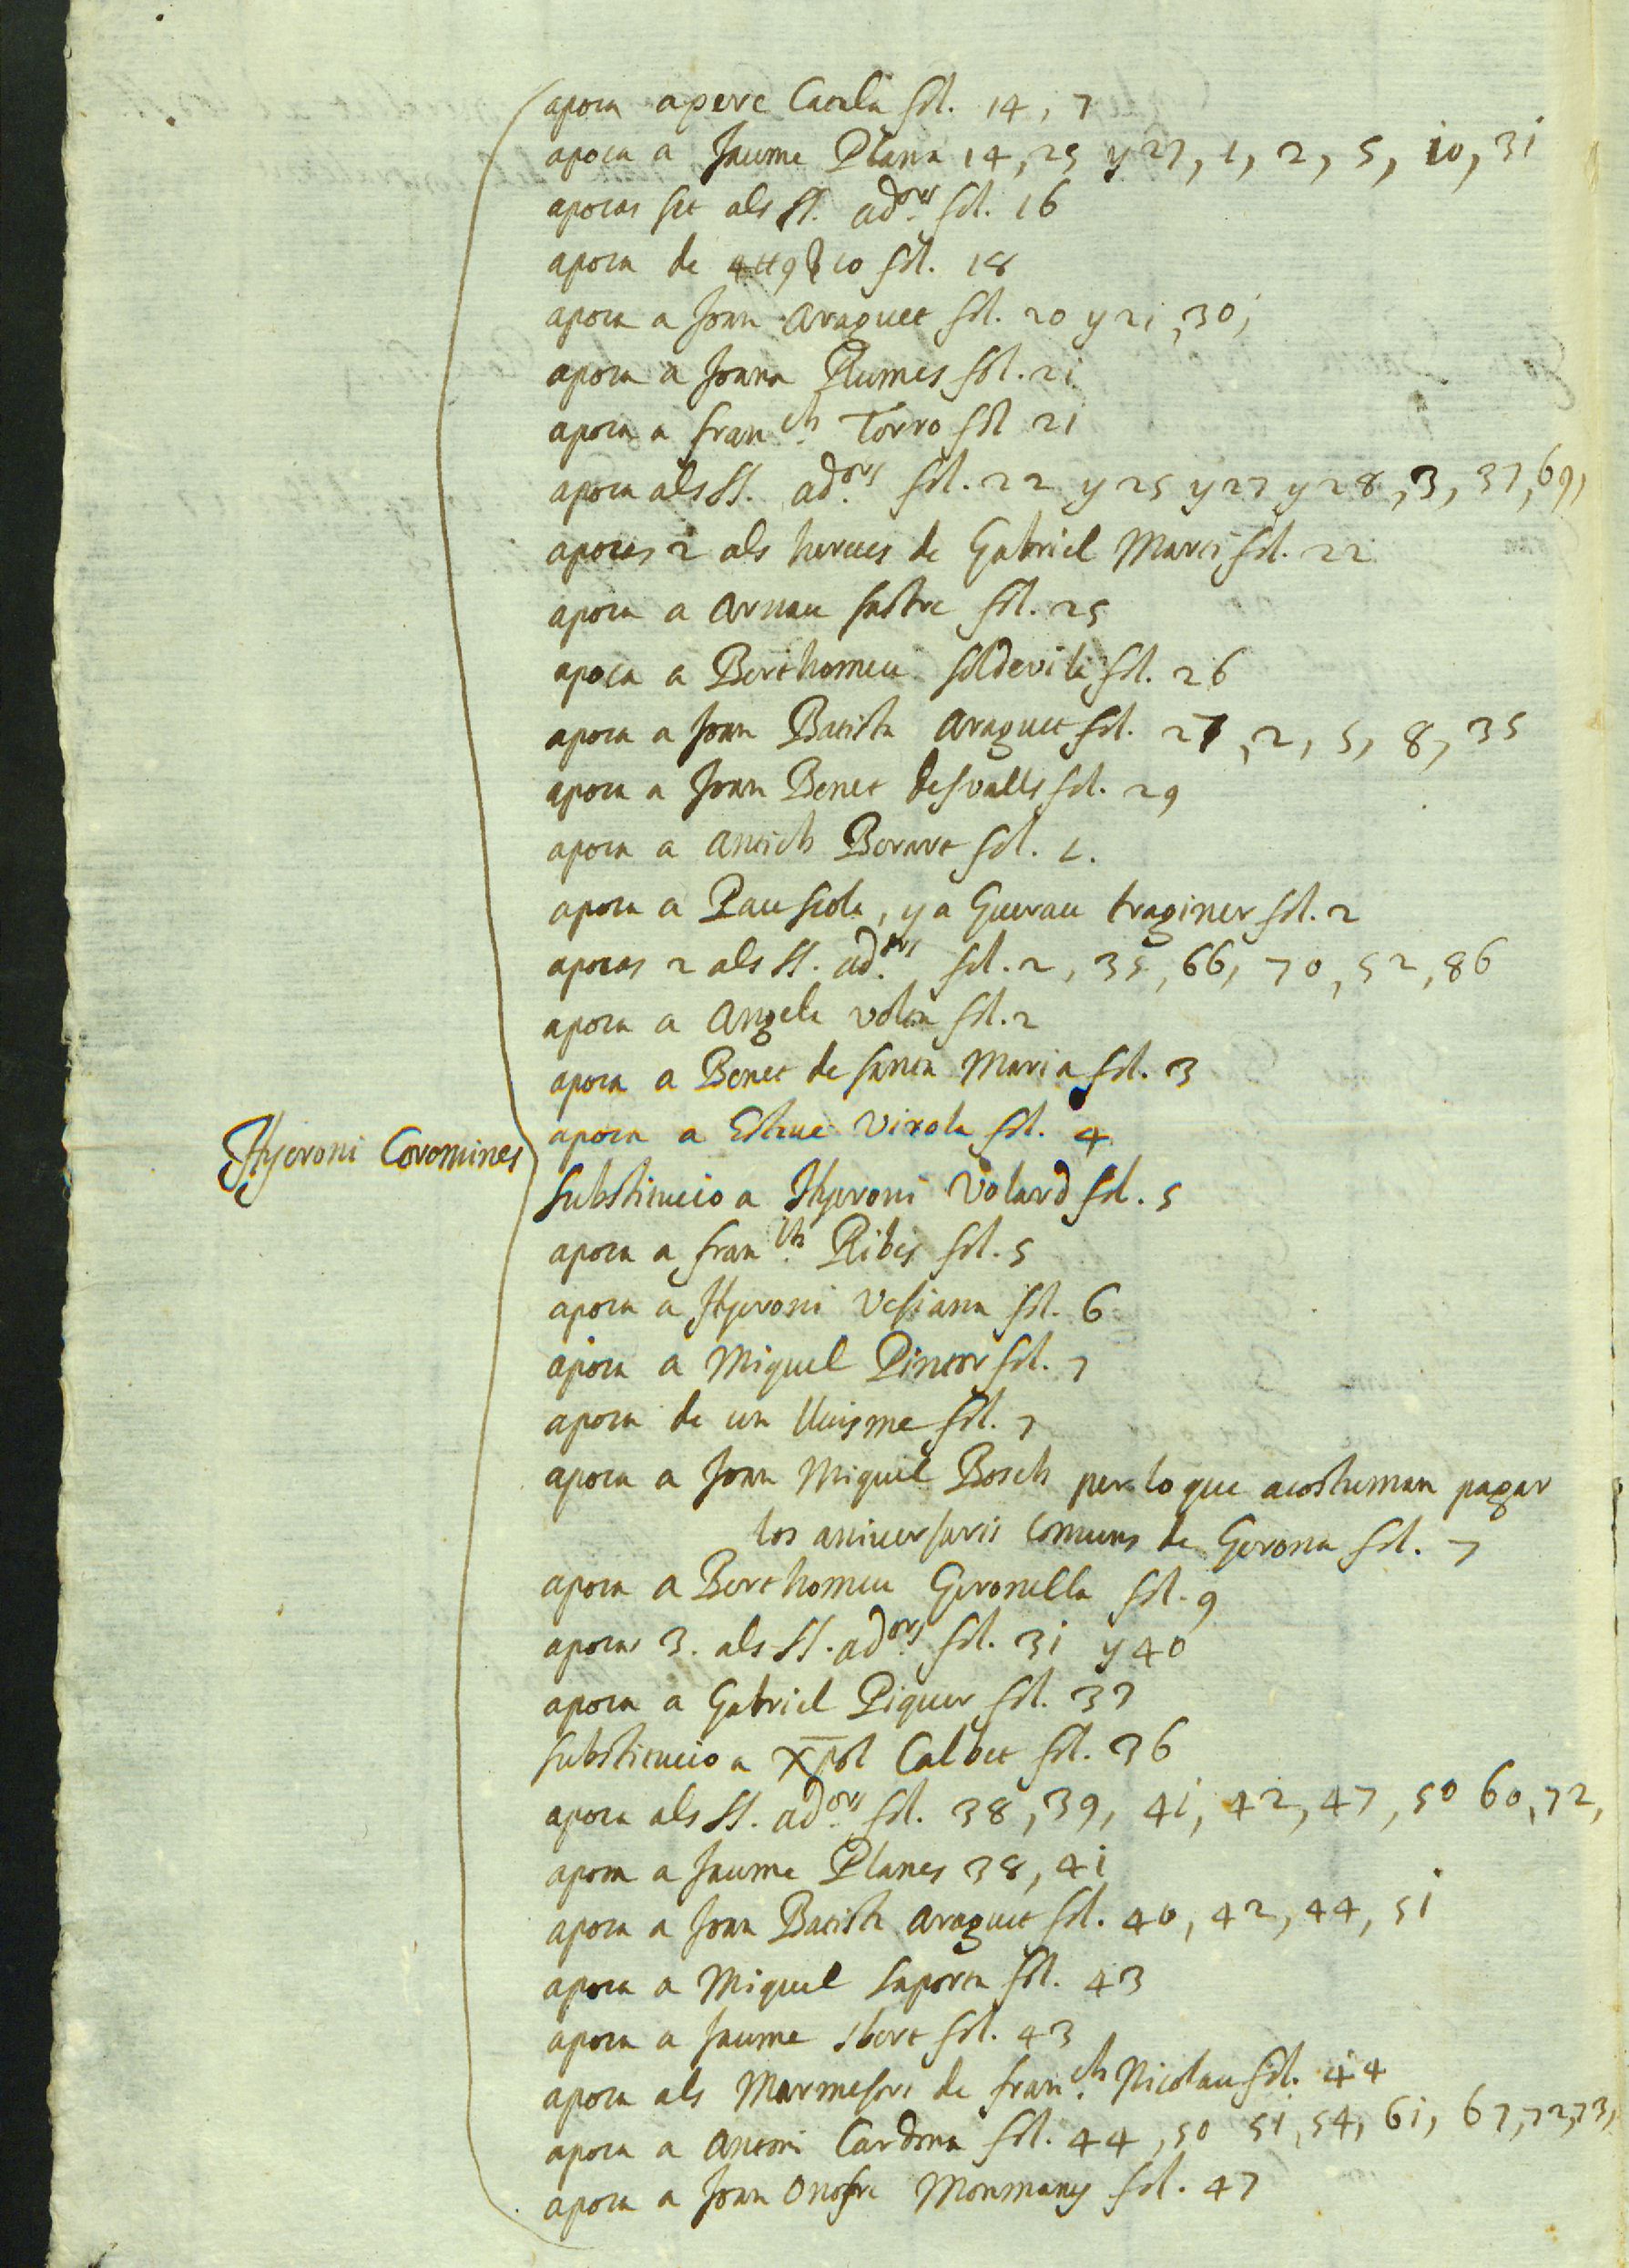 apoca a pere Carela fol. 14, 7
apoca a Jaume Plana 14, 25 y 27, 1, 2, 5, 10, 31
apocas set als SS. ad.ors fol. 16
apoca de fol. 18
apoca a Joan Araguet fol. 20 y 21, 30,
apoca a Joana Plumes fol. 21
apoca a fran.ch Torro fol 21
apoca als SS. ad.ors fol. 22 y 25 y 27 y 28, 3, 37, 69,
apocas 2 als hereus de Gabriel Marti fol. 22
apoca a Arnau sastre fol. 25
apoca a Berthomeu soldevila fol. 26
apoca a Joan Batista Araguet fol. 27, 2, 5, 8, 35
apoca a Joan Benet desvalls fol. 29
apoca a Antich Berart fol. 1.
apoca a Pau scola, y a Guerau traginer fol. 2
apocas 2 als SS. ad.ors fol. 2, 35, 66, 70, 52, 86
apoca a Angela fol. 2
apoca a Benet de santa Maria fol. 3
apoca a Esteve Virola fol. 4
Hyeroni Coromines
substitucio a Hyeroni Volard fol. 5
apoca a fran.ch Ribes fol. 5
apoca a Hyeroni Vesiana fol. 6
apoca a Miquel Pintor fol. 7
apoca de un lluisme fol. 7
apoca a Joan Miquel Bosch per lo que acostuman pagar
los aniversaris Comuns de Gerona fol. 7
apoca a Berthomeu Gironella fol. 9
apocas 3. als SS. ad.ors fol. 31 y 40
apoca a Gabriel Piquer fol. 37
substitucio a Xpol Calbet fol. 36
apoca als SS. ad.ors fol. 38, 39, 41, 42, 47, 50 60, 72,
apoca a Jaume Planes 38, 41
apoca a Joan Batista Araguet fol. 40, 42, 44, 51
apoca a Miquel Saporta fol. 43
apoca a Jaume sbert fol. 43
apoca als Marmesors de fran.ch Nicolau fol. 44
apoca a Antoni Cardona fol. 44, 50 51, 54, 61, 67, 72, 73,
apoca a Joan Onofre Monmany fol. 47